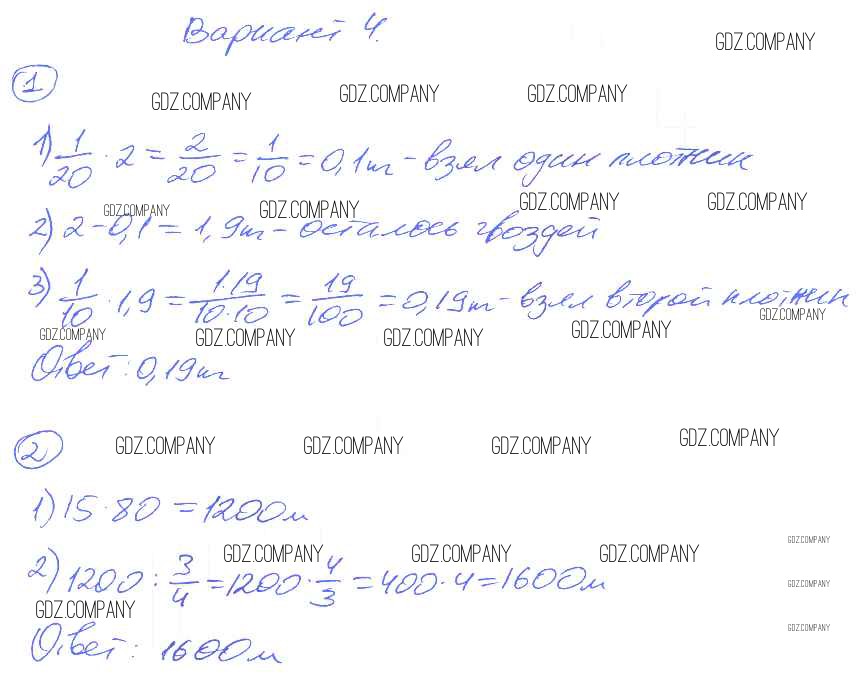 Вариант 4.
GDZ.COMPANY
1
GDZ.COMPANY GDZ.COMPANY GDZ.COMPANY
1) 1/20 · 2 = 2/20 = 1/10 = 0,1т - взял один плотник
GDZ.COMPANY GDZ.COMPANY GDZ.COMPANY GDZ.COMPANY
2) 2 - 0,1 = 1,9т - осталось гвоздей
3) 1/10 · 1,9 = 1·19/10·10 = 19/100 = 0,19т - взял второй плотник
GDZ.COMPANY GDZ.COMPANY GDZ.COMPANY GDZ.COMPANY GDZ.COMPANY
Ответ: 0,19т
2
GDZ.COMPANY GDZ.COMPANY GDZ.COMPANY GDZ.COMPANY
1) 15·80 = 1200м
GDZ.COMPANY
GDZ.COMPANY GDZ.COMPANY GDZ.COMPANY
2) 1200 : 3/4 = 1200 · 4/3 = 400·4 = 1600м
GDZ.COMPANY
GDZ.COMPANY
GDZ.COMPANY
Ответ: 1600м